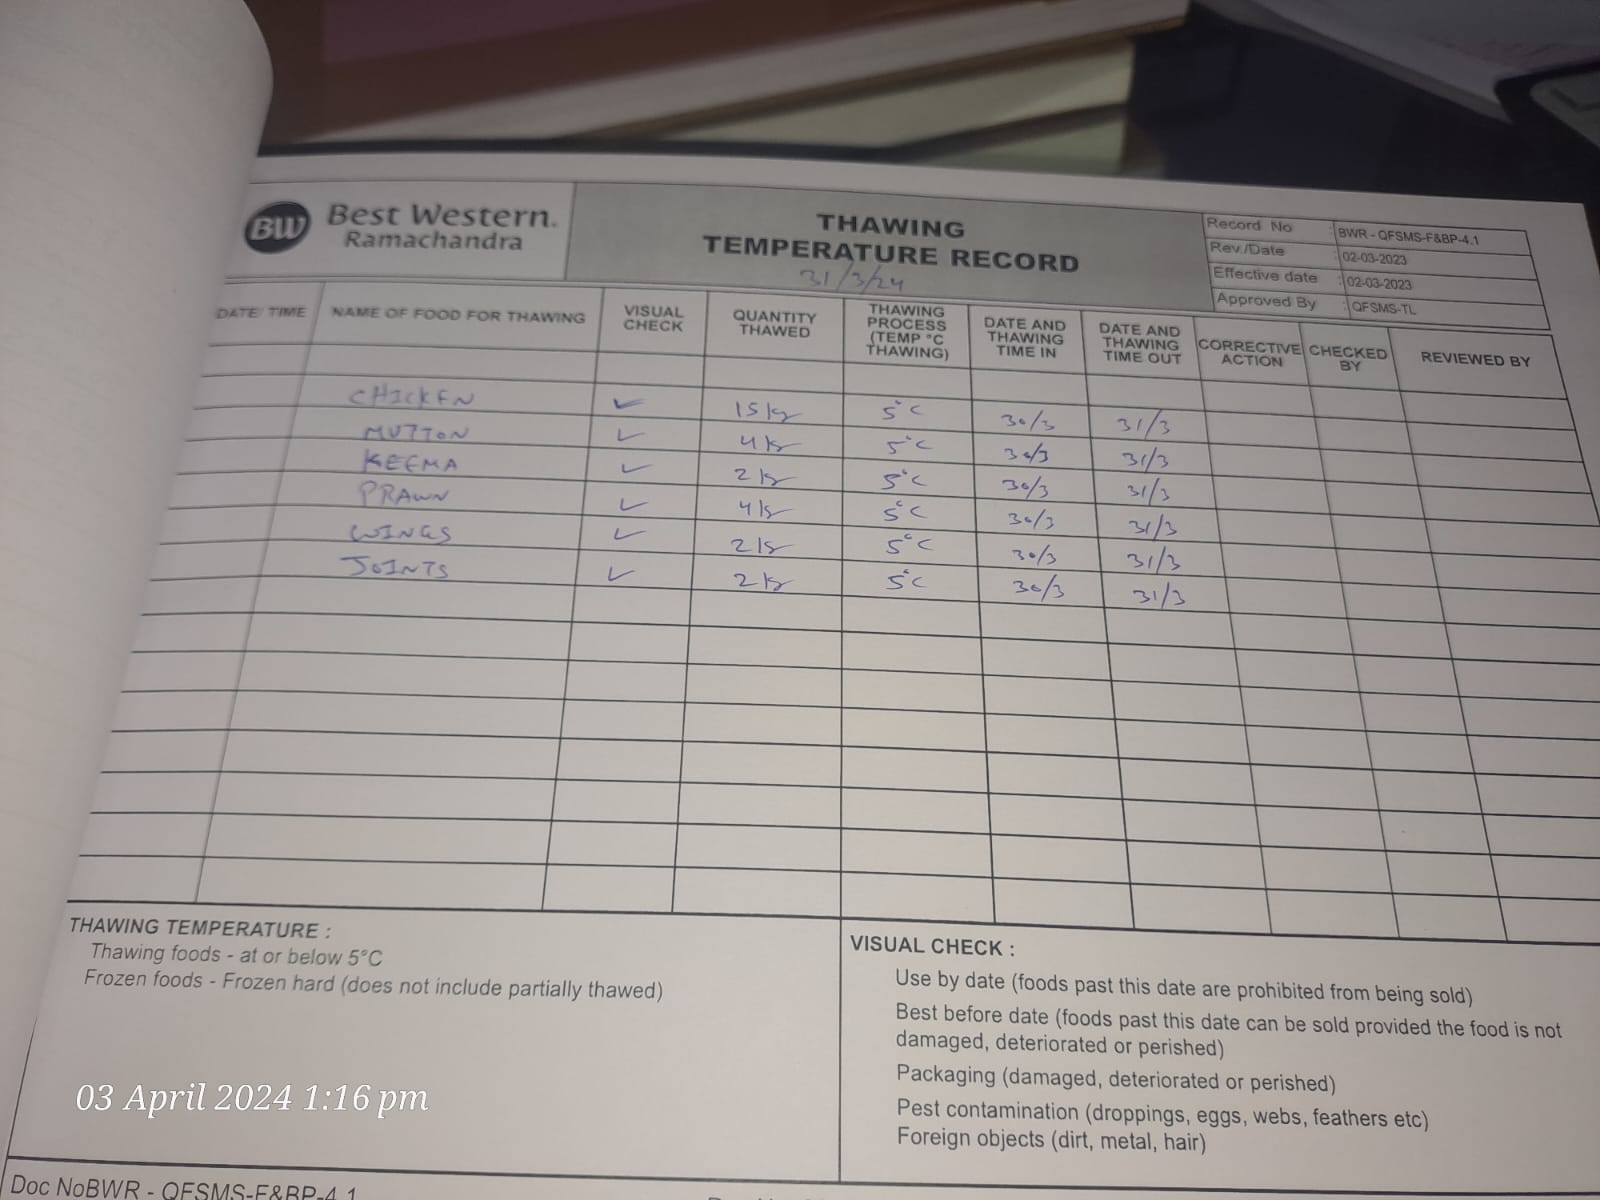 BW Best Western.
Ramachandra
THAWING
TEMPERATURE RECORD
31/3/24
Record No : BWR - QFSMS-F&BP-4.1
Rev./Date : 02-03-2023
Effective date : 02-03-2023
Approved By : QFSMS-TL
DATE/ TIME NAME OF FOOD FOR THAWING VISUAL CHECK QUANTITY THAWED THAWING PROCESS (TEMP °C THAWING) DATE AND THAWING TIME IN DATE AND THAWING TIME OUT CORRECTIVE ACTION CHECKED BY REVIEWED BY
CHICKEN ✓ 15 kg 5°C 30/3 31/3
MUTTON ✓ 4 kg 5°C 30/3 31/3
KEEMA ✓ 2 kg 5°C 30/3 31/3
PRAWN ✓ 4 kg 5°C 30/3 31/3
WINGS ✓ 2 kg 5°C 30/3 31/3
JOINTS ✓ 2 kg 5°C 30/3 31/3
THAWING TEMPERATURE :
Thawing foods - at or below 5°C
Frozen foods - Frozen hard (does not include partially thawed)
VISUAL CHECK :
Use by date (foods past this date are prohibited from being sold)
Best before date (foods past this date can be sold provided the food is not
damaged, deteriorated or perished)
Packaging (damaged, deteriorated or perished)
Pest contamination (droppings, eggs, webs, feathers etc)
Foreign objects (dirt, metal, hair)
03 April 2024 1:16 pm
Doc NoBWR - QFSMS-F&BP-4.1